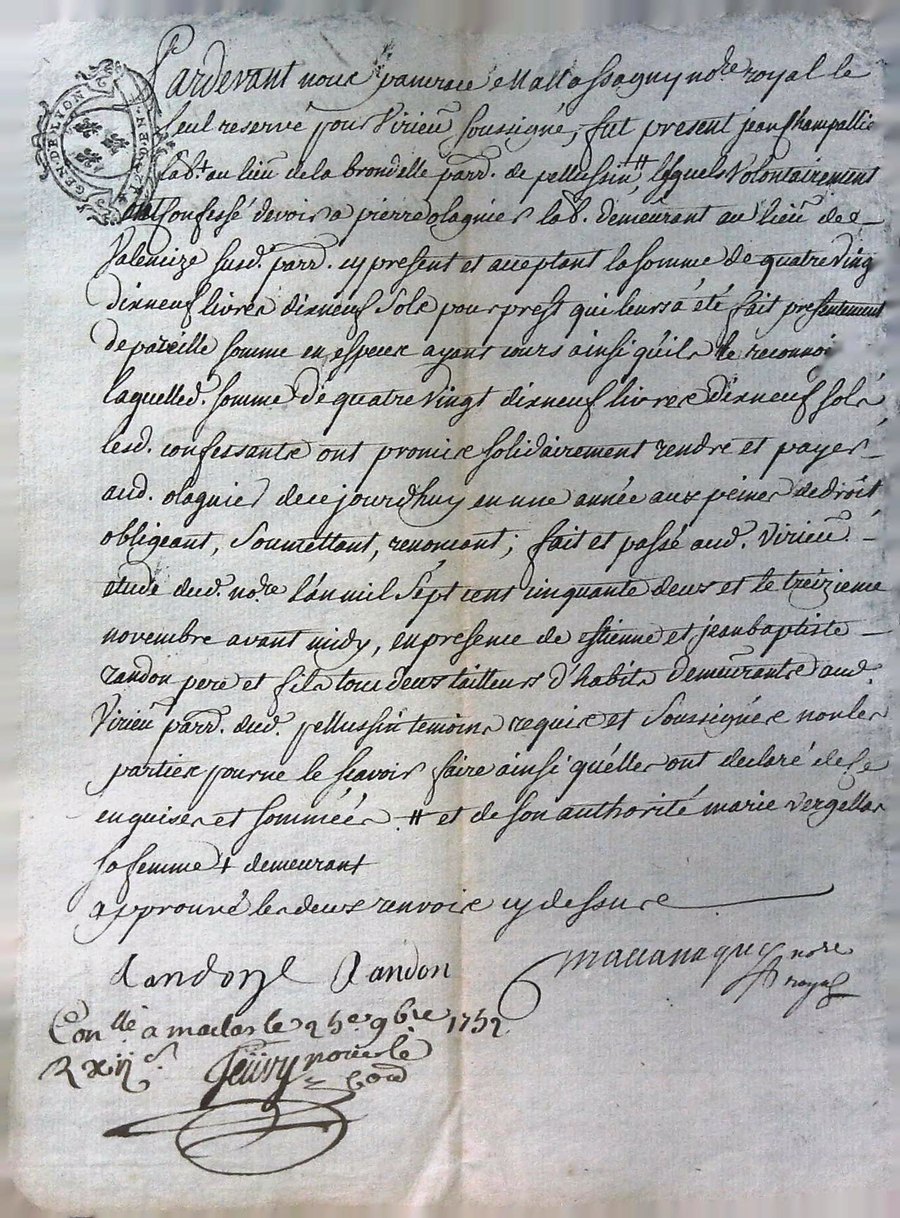 GEN. DE LYON
Pardevant nous pancrace Mattassagny no.re royal le
seul reservé pour Virieu soussigné, fut present jean Champallié
lab.r au lieu de la brondelle parr. de pellussin ++, lesquels volontairement
ont confessé devoir a pierre olagnier lab. demeurant au lieu de
Valencize susd. parr. cy present et acceptant la somme de quatre ving
dixneuf livres dixneuf sols pour prest qui leurs a été fait presentement
de pareille somme en especes ayant cours ainsi quils le reconnoi
laquelled. somme de quatre vingt dixneuf livres dixneuf sols
lesd. confessants ont promis solidairement rendre et payer
aud. olagnier de ce jourdhuy en une année aux peines de droit
obligeant, soumettant, renoncant; fait et passé aud. Virieu
etude dud. no.re l'an mil sept cent cinquante deux et le treizieme
novembre avant midy, en presence de estienne et jean baptiste
randon pere et fils tous deux tailleurs d'habits demeurants aud.
Virieu parr. dud. pellussin temoins requis et soussignés non les
parties pour ne le scavoir faire ainsi quelles ont declaré de ce
enquises et sommées ++ et de son authorité marie vergellas
sa femme + demeurant
approuvé les deux renvois cy dessus
Randon Randon nore
royal
Con.llé a maclas le 25e 9bre 1752
R xij s.